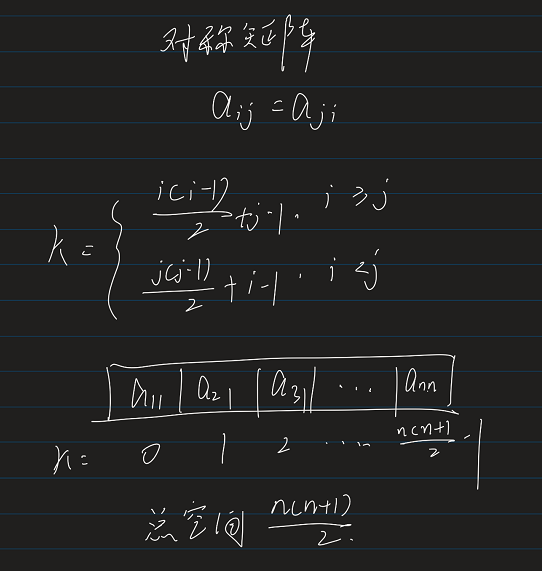 对称矩阵
a_{ij} = a_{ji}
k = { i(i-1)/2 + j-1, i ≥ j
j(j-1)/2 + i-1, i < j
a_{11} | a_{21} | a_{31} | ... | a_{nn}
k= 0 1 2 ... n(n+1)/2 -1
总空间 n(n+1)/2.